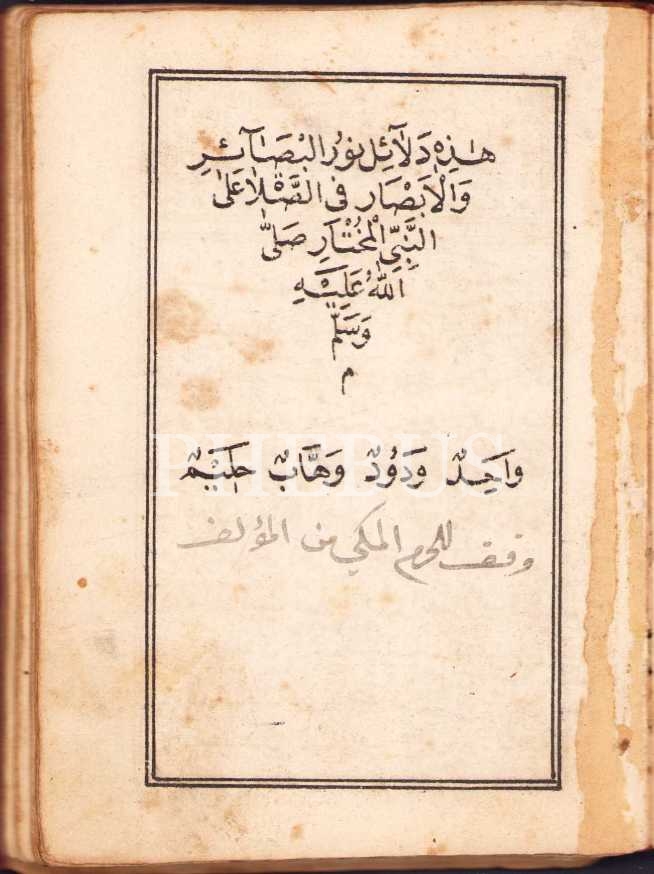 هٰذِهِ دَلَآئِل نُورُ الْبَصَآئِرِ
وَالْاَبْصَارِ فِى الصَّلٰاةِ عَلٰى
النَّبِىِّ الْمُخْتَارِ صَلَّى
اللّٰهُ عَلَيْهِ
وَسَلَّم
م
وَاحِدٌ وَدُوُدٌ وَهَّابٌ حَلِيْمٌ
PHEBUS
وقف للحرم المكي من المؤلف